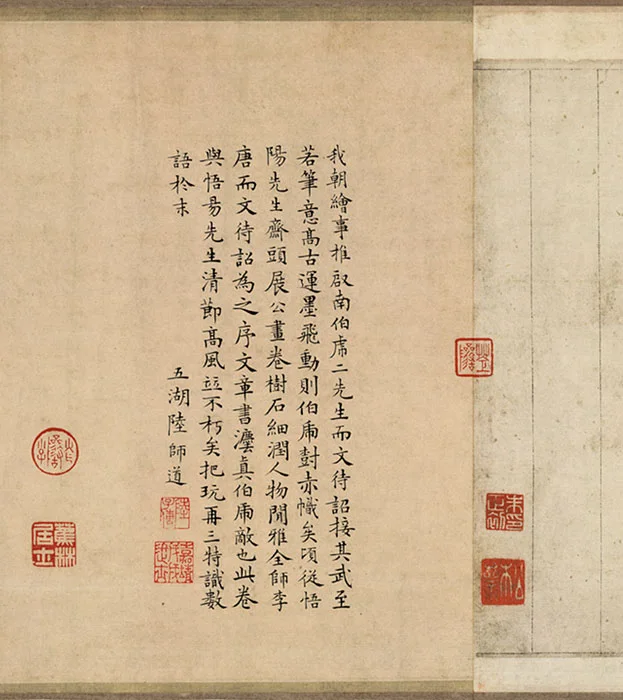 我朝繪事推啟南伯虎二先生而文待詔接其武至
若筆意高古運墨飛動則伯虎對赤幟矣頃從悟
陽先生齋頭展公畫卷樹石細潤人物閒雅全師李
唐而文待詔為之序文章書灋真伯虎敵也此卷
與悟昜先生清節高風竝不朽矣把玩再三特識數
語於末
五湖陸師道
蕉林居士